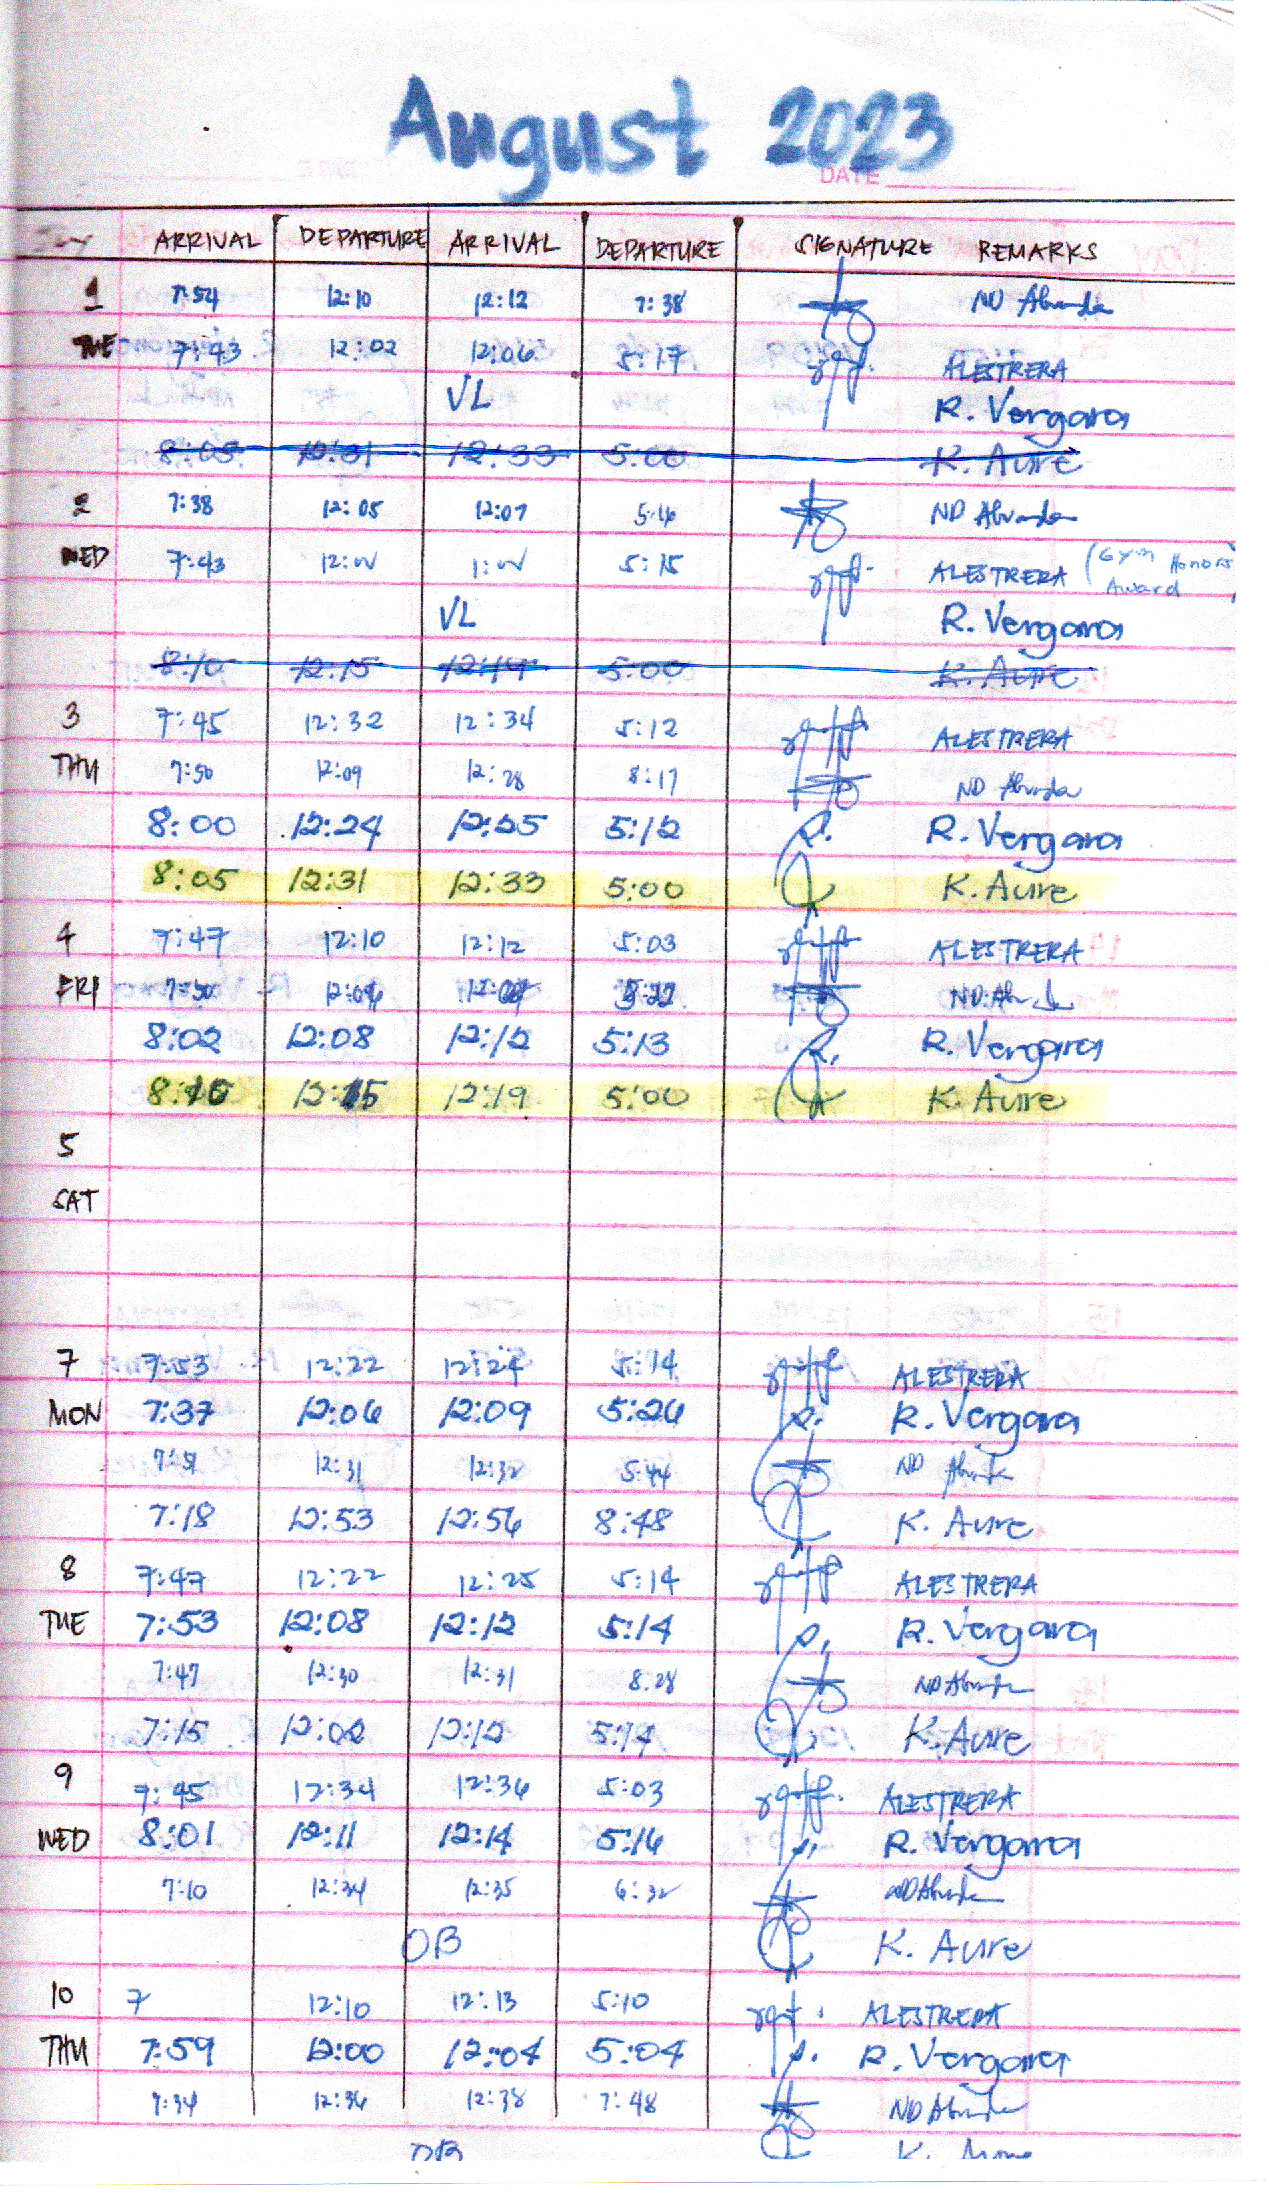 August 2023
DATE
ARRIVAL DEPARTURE ARRIVAL DEPARTURE SIGNATURE REMARKS
1 7:54 12:10 12:12 7:38 ND Abunda
TUE 7:43 12:02 12:06 5:17 ALESTRERA
VL R. Vergara
12:31 12:33 5:00 K. Aure
2 7:38 12:05 12:07 5:16 ND Abunda
WED 7:43 12:00 1:00 5:15 ALESTRERA (Gym Honors
Award )
VL R. Vergara
8:10 12:15 12:19 5:00 K. Aure
3 7:45 12:32 12:34 5:12 ALESTRERA
THU 7:50 12:09 12:28 8:17 ND Abunda
8:00 12:24 12:25 5:12 R. Vergara
8:05 12:31 12:33 5:00 K. Aure
4 7:47 12:10 12:12 5:03 ALESTRERA
FRI 7:50 ND Abunda
8:02 12:08 12:12 5:13 R. Vergara
8:10 12:15 12:19 5:00 K. Aure
5
SAT
7 7:53 12:22 12:24 5:14 ALESTRERA
MON 7:37 12:06 12:09 5:26 R. Vergara
7:51 12:31 12:32 5:44 ND Abunda
7:18 12:53 12:56 8:48 K. Aure
8 7:47 12:22 12:25 5:14 ALESTRERA
TUE 7:53 12:08 12:12 5:14 R. Vergara
7:47 12:30 12:31 8:28 ND Abunda
7:15 12:02 12:12 5:14 K. Aure
9 7:45 12:34 12:36 5:03 ALESTRERA
WED 8:01 12:11 12:14 5:16 R. Vergara
7:10 12:34 12:35 6:32 ND Abunda
OB K. Aure
10 7 12:10 12:13 5:10 ALESTRERA
THU 7:59 12:00 12:04 5:04 R. Vergara
7:34 12:36 12:38 7:48 ND Abunda
OB K. Aure